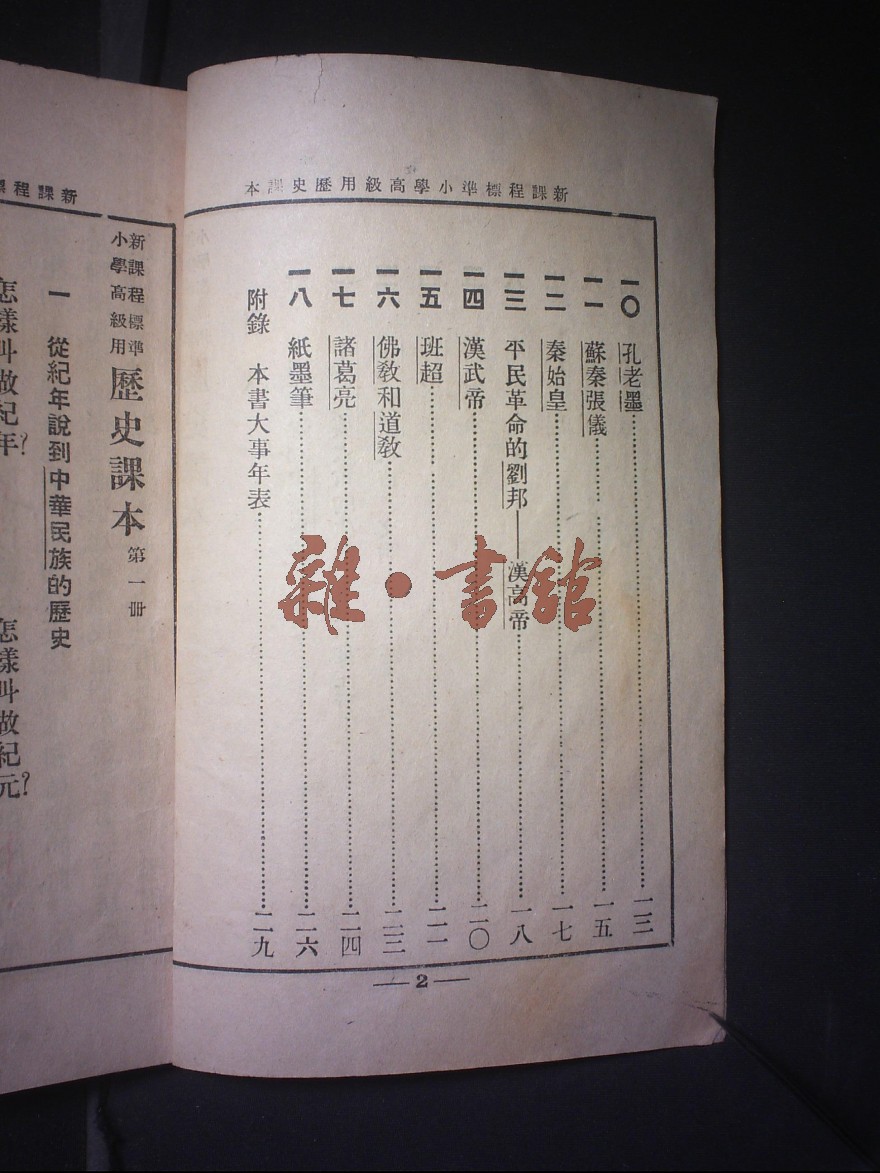 本課史歷用級高學小準標程課新
一〇 孔老墨 一三
一一 蘇秦張儀 一五
一二 秦始皇 一七
一三 平民革命的劉邦——漢高帝 一八
一四 漢武帝 二〇
一五 班超 二一
一六 佛教和道教 二三
一七 諸葛亮 二四
一八 紙墨筆 二六
附錄 本書大事年表 二九
—2—
雜·書館
程課新
新課程標準
小學高級用
歷史課本 第一冊
一 從紀年說到中華民族的歷史
怎樣叫做紀年? 怎樣叫做紀元?